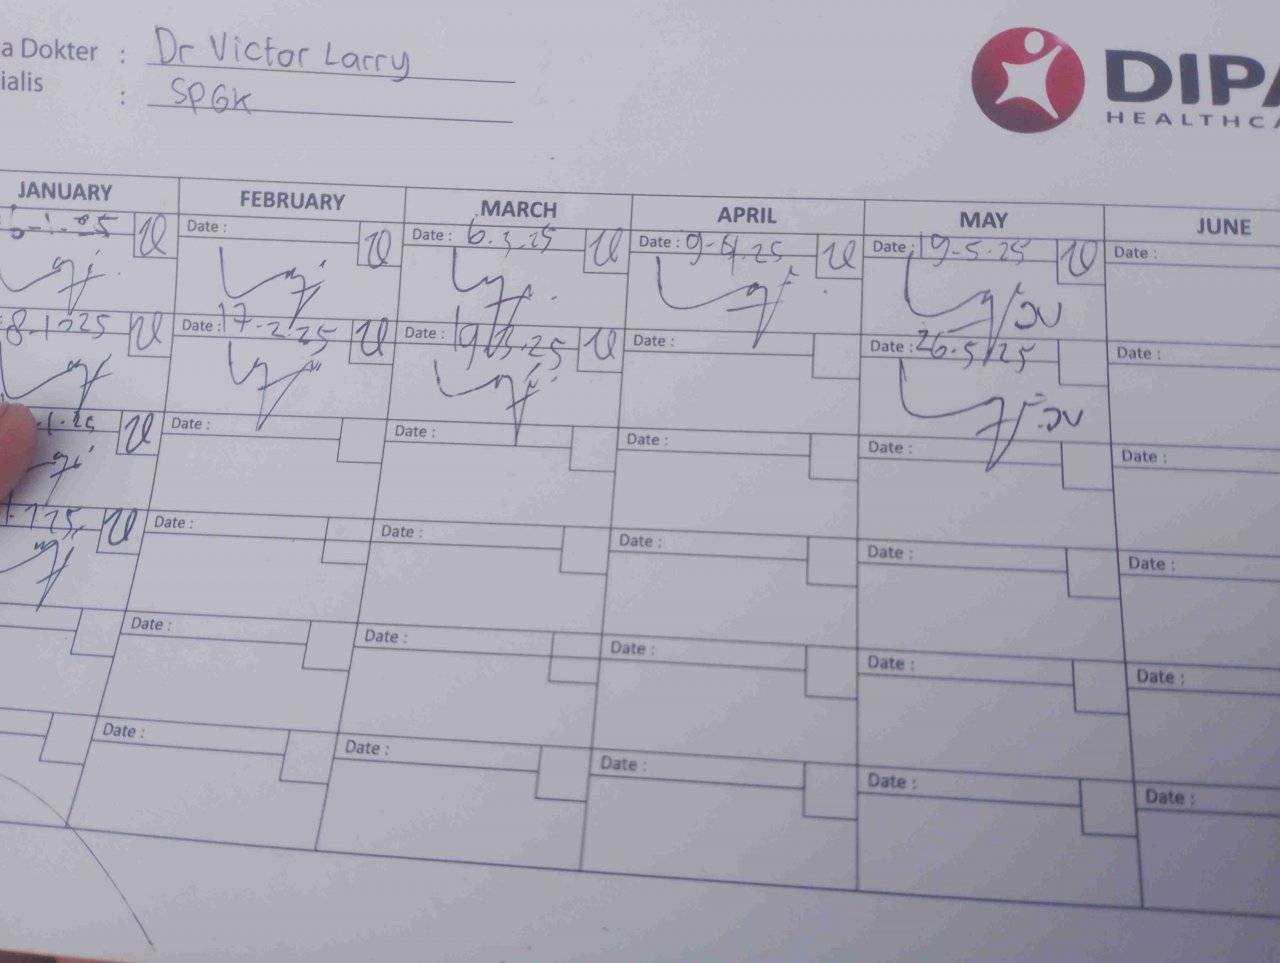 a Dokter : Dr Victor Larry
ialis : SPGK
DIPA
HEALTHCA
JANUARY FEBRUARY MARCH APRIL MAY JUNE
Date : Date : 6.3.25 Date : 9-4.25 Date : 19-5.25 Date :
8-1025 Date : 17-2.25 Date : 19.3.25 Date : Date : 26.5/25 Date :
Date : Date : Date : Date : Date :
Date : Date : Date : Date : Date :
Date : Date : Date : Date : Date :
Date : Date : Date : Date : Date :